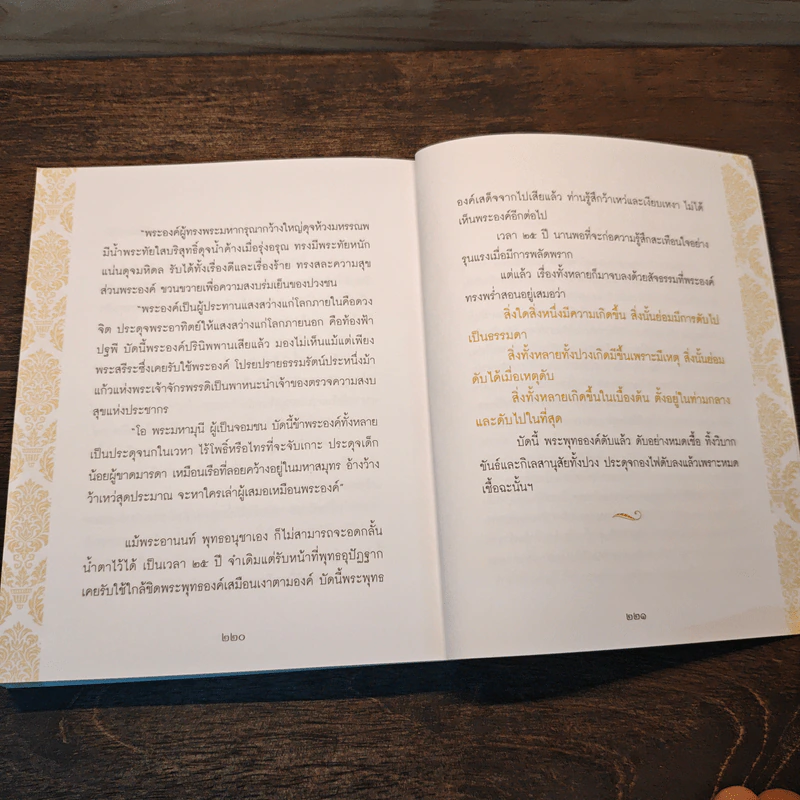 "พระองค์ผู้ทรงพระมหากรุณากว้างใหญ่ดุจห้วงมหรรณพ
มีน้ำพระทัยใสบริสุทธิ์ดุจน้ำค้างเมื่อรุ่งอรุณ ทรงมีพระทัยหนัก
แน่นดุจมหิดล รับได้ทั้งเรื่องดีและเรื่องร้าย ทรงสละความสุข
ส่วนพระองค์ ขวนขวายเพื่อความสงบร่มเย็นของปวงชน
"พระองค์เป็นผู้ประทานแสงสว่างแก่โลกภายในคือดวง
จิต ประดุจพระอาทิตย์ให้แสงสว่างแก่โลกภายนอก คือท้องฟ้า
ปฐพี บัดนี้พระองค์ปรินิพพานเสียแล้ว มองไม่เห็นแม้แต่เพียง
พระสรีระซึ่งเคยรับใช้พระองค์ โปรยปรายธรรมรัตน์ประหนึ่งม้า
แก้วแห่งพระเจ้าจักรพรรดิเป็นพาหนะนำเจ้าของตรวจความสงบ
สุขแห่งประชากร
"โอ พระมหามุนี ผู้เป็นจอมชน บัดนี้ข้าพระองค์ทั้งหลาย
เป็นประดุจนกในเวหา ไร้โพธิ์หรือไทรที่จะจับเกาะ ประดุจเด็ก
น้อยผู้ขาดมารดา เหมือนเรือที่ลอยคว้างอยู่ในมหาสมุทร อ้างว้าง
ว้าเหว่สุดประมาณ จะหาใครเล่าผู้เสมอเหมือนพระองค์"
แม้พระอานนท์ พุทธอนุชาเอง ก็ไม่สามารถจะอดกลั้น
น้ำตาไว้ได้ เป็นเวลา ๒๕ ปี จำเดิมแต่รับหน้าที่พุทธอุปัฏฐาก
เคยรับใช้ใกล้ชิดพระพุทธองค์เสมือนเงาตามองค์ บัดนี้พระพุทธ
๒๒๐
องค์เสด็จจากไปเสียแล้ว ท่านรู้สึกว้าเหว่และเงียบเหงา ไม่ได้
เห็นพระองค์อีกต่อไป
เวลา ๒๕ ปี นานพอที่จะก่อความรู้สึกสะเทือนใจอย่าง
รุนแรงเมื่อมีการพลัดพราก
แต่แล้ว เรื่องทั้งหลายก็มาจบลงด้วยสัจธรรมที่พระองค์
ทรงพร่ำสอนอยู่เสมอว่า
สิ่งใดสิ่งหนึ่งมีความเกิดขึ้น สิ่งนั้นย่อมมีการดับไป
เป็นธรรมดา
สิ่งทั้งหลายทั้งปวงเกิดมีขึ้นเพราะมีเหตุ สิ่งนั้นย่อม
ดับได้เมื่อเหตุดับ
สิ่งทั้งหลายเกิดขึ้นในเบื้องต้น ตั้งอยู่ในท่ามกลาง
และดับไปในที่สุด
บัดนี้ พระพุทธองค์ดับแล้ว ดับอย่างหมดเชื้อ ทั้งวิบาก
ขันธ์และกิเลสานุสัยทั้งปวง ประดุจกองไฟดับลงแล้วเพราะหมด
เชื้อฉะนั้นฯ
๒๒๑